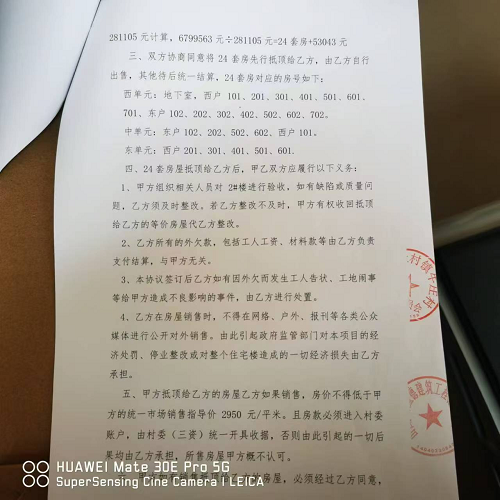 281105 元计算，6799563 元÷281105 元=24 套房+53043 元
三、双方协商同意将 24 套房先行抵顶给乙方，由乙方自行
出售，其他待后统一结算，24 套房对应的房号如下：
西单元：地下室，西户 101、201、301、401、501、601、
701、东户 102、202、302、402、502、602、702。
中单元：东户 102、202、502、602、西户 101。
东单元：西户 201、301、401、501、601.
四、24 套房屋抵顶给乙方后，甲乙双方应履行以下义务：
1、甲方组织相关人员对 2#楼进行验收，如有缺陷或质量问
题，乙方须及时整改。若乙方整改不及时，甲方有权收回抵顶
给乙方的等价房屋代乙方整改。
2、乙方所有的外欠款，包括工人工资、材料款等由乙方负责
支付结算，与甲方无关。
3、本协议签订后乙方如有因外欠而发生工人告状、工地闹事
等给甲方造成不良影响的事件，由乙方进行处置。
4、乙方在房屋销售时，不得在网络、户外、报刊等各类公众
媒体进行公开对外销售。由此引起政府监管部门对本项目的经
济处罚、停业整改或对整个住宅楼造成的一切经济损失由乙方
承担。
五、甲方抵顶给乙方的房屋乙方如果销售，房价不得低于甲
方的统一市场销售指导价 2950 元/平米。且房款必须进入村委
账户，由村委（三资）统一开具收据，否则由此引起的一切后
果均由乙方承担，所售房屋甲方概不认可。
乙方如有销售抵顶给乙方的房屋，必须经过乙方同意，
HUAWEI Mate 30E Pro 5G
SuperSensing Cine Camera | LEICA